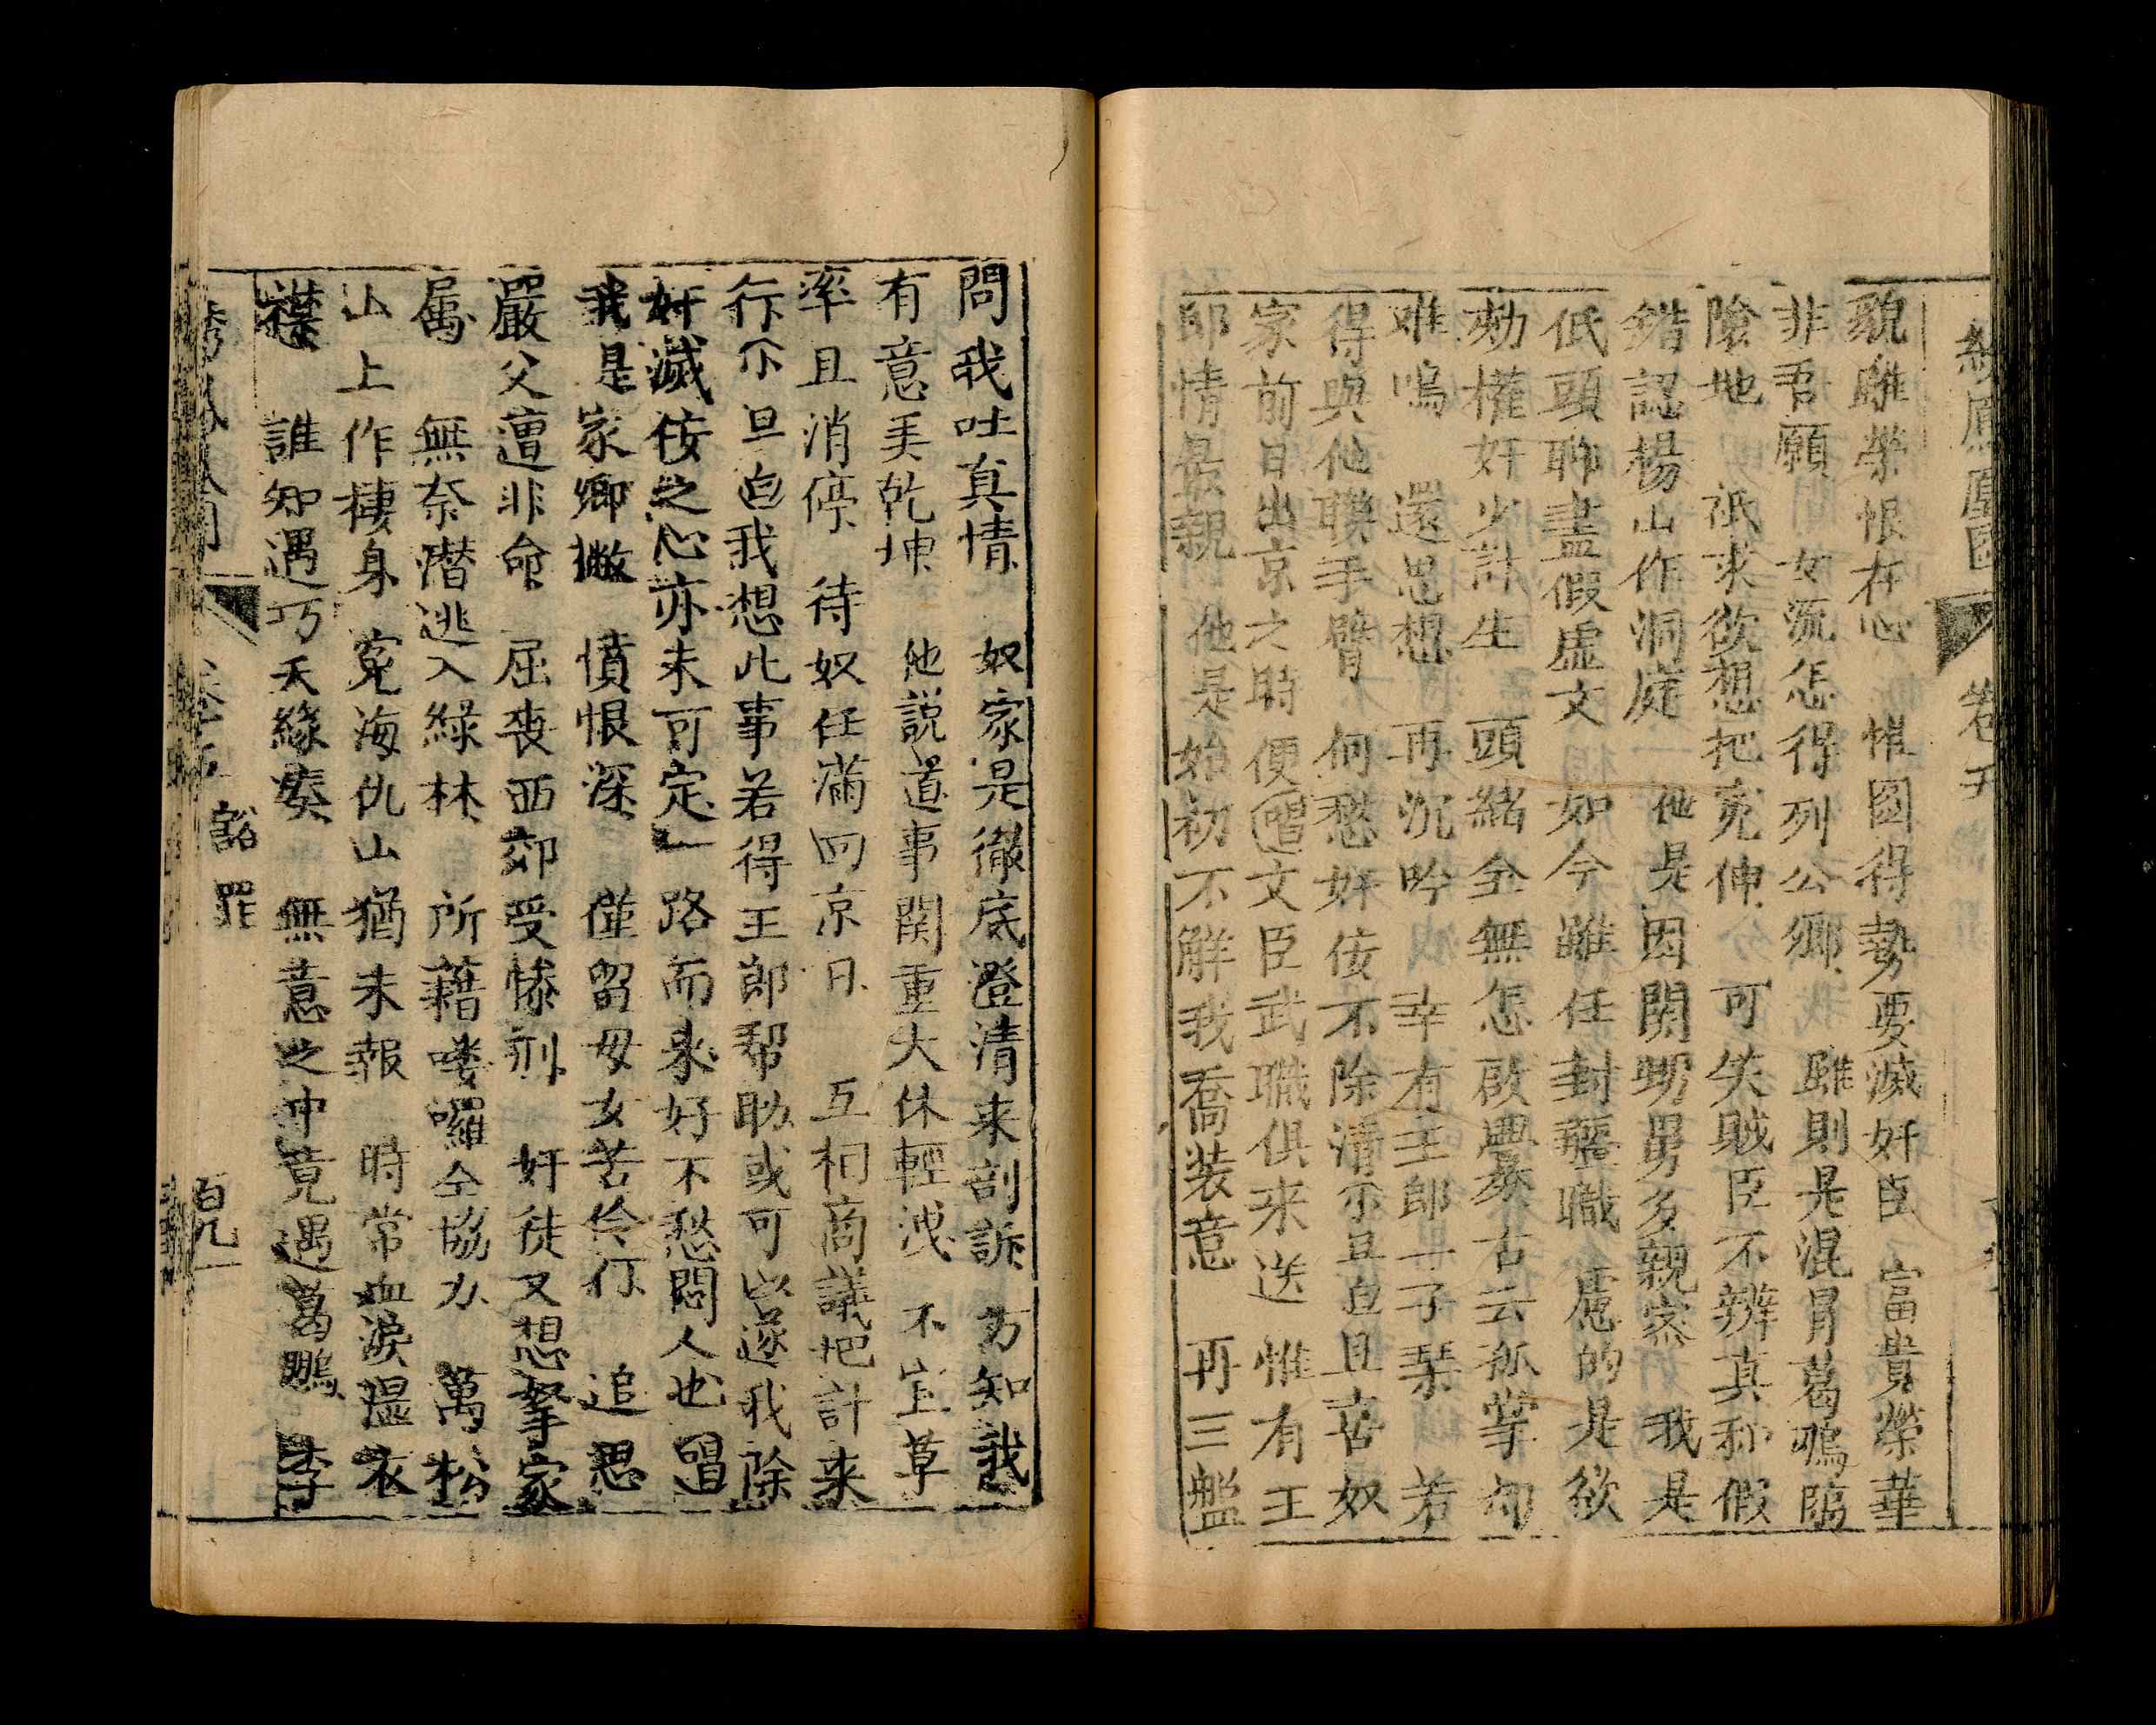 繡鳳凰圖 卷五
貌雖榮恨在心 惟圖得勢要滅奸臣 富貴榮華
非吾願 女流怎得列公卿 雖則是混冒葛鵬臨
陰地 祇求欲想把冤伸 可笑賊臣不辨真和假
錯認楊山作洞庭 他是因関甥舅多親密 我是
低頭聊盡假虛文 如今雖任封疆職 慮的是欲
劾權奸少計生 頭緒全無怎啟興 古云孤掌勾
难鳴 還思想 再沉吟 幸有王郎一子琹 若
得與他聯手臂 何愁奸侫不除清 尒旦白且喜奴
家前日出京之時便唱文臣武職俱来送 惟有王
郎情最親 他是始初不解我喬裝意 再三盤
問我吐真情 奴家是徹底澄清来剖訴 方知我
有意美乾坤 他説道事関重大休輕洩 不宜草
率且消停 待奴任滿回京日 互相商議把計来
行 尒旦白我想此事若得王郎帮助或可以遂我除
奸滅侫之心亦未可定一路而来好不愁悶人也唱
我是家卿撇 憤恨深 僅留母女苦伶仃 追思
嚴父遭非命 屈喪西郊受慘刑 奸徒又想拏家
属 無奈潛逃入綠林 所藉喽囉仝協力 萬松
山上作棲身 寃海仇山猶未報 時常血淚濕衣
襟 誰知遇巧天緣奏 無意之中竟遇葛鵬 李
繡鳳凰圖 卷五 豁罪 百九